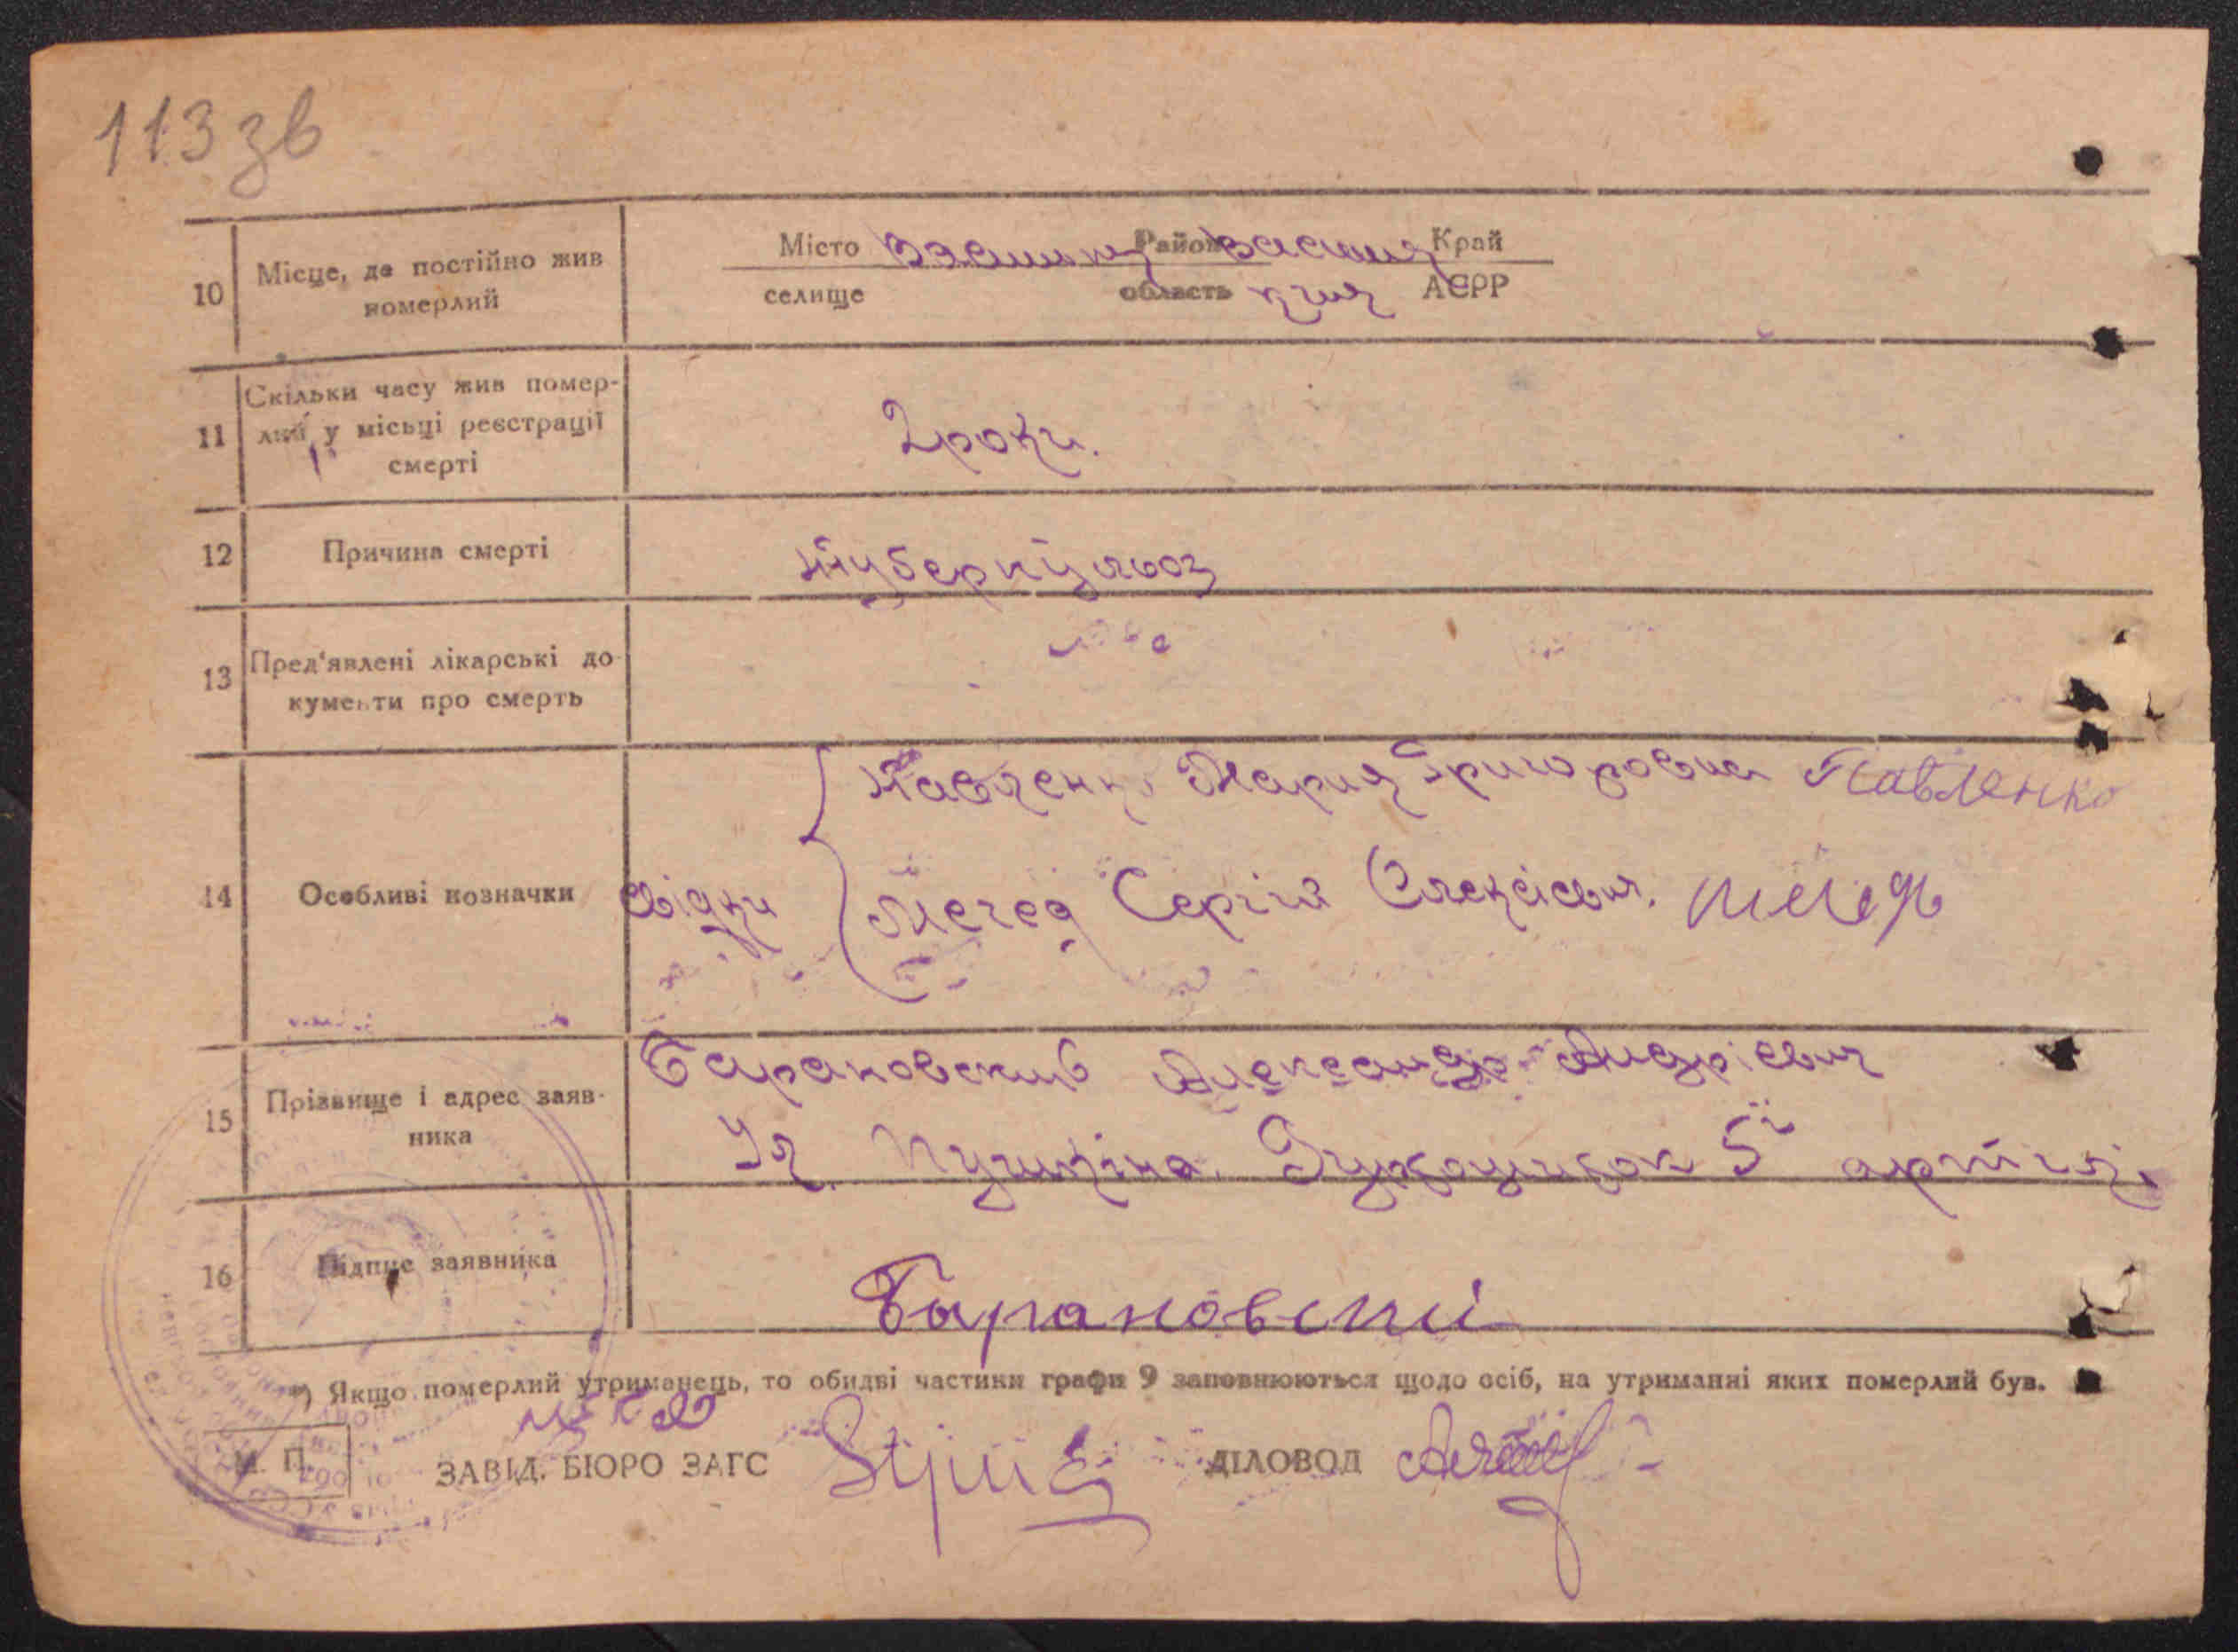 113 зв
10 Місце, де постійно жив померлий
Місто селище Район область Край АСРР
11 Скільки часу жив помер-
лий у місьці реєстрації
смерті
2 роки.
12 Причина смерті
туберкульоз
13 Пред'явлені лікарські до-
кументи про смерть
14 Особливі позначки
свідки
Павленко Мария Григоровна Павленко
Мегед Сергій Олексієвич. Мегедь
15 Прізвище і адрес заяв-
ника
Барановский Александр Андрієвич
Ул. Пушкіна. 5ї артіл.
16 Підпис заявника
Барановский
*) Якщо померлий утриманець, то обидві частини графи 9 заповнюються щодо осіб, на утриманні яких померлий був.
М. П.
ЗАВІД. БЮРО ЗАГС
ДІЛОВОД